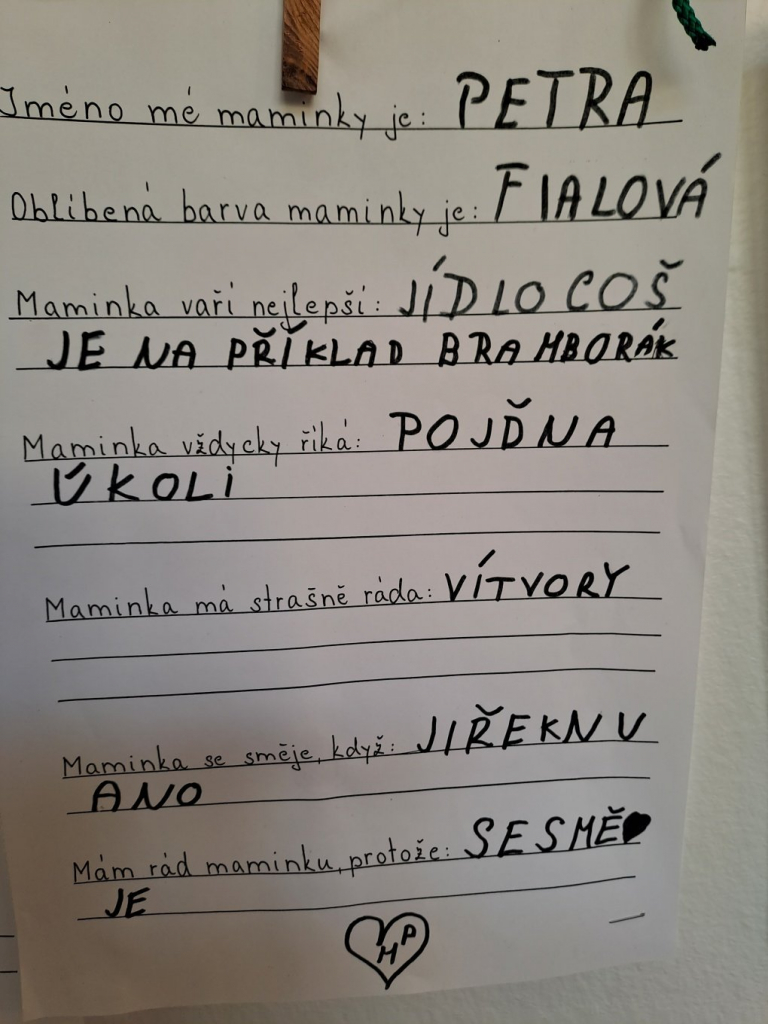 Jméno mé maminky je: PETRA
Oblíbená barva maminky je: FIALOVÁ
Maminka vaří nejlepší: JÍDLO COŠ
JE NA PŘÍKLAD BRAMBORÁK
Maminka vždycky říká: POJĎNA
ÚKOLI
Maminka má strašně ráda: VÍTVORY
Maminka se směje, když: JIŘEKNU
ANO
Mám rád maminku, protože: SESMĚ
JE
MP